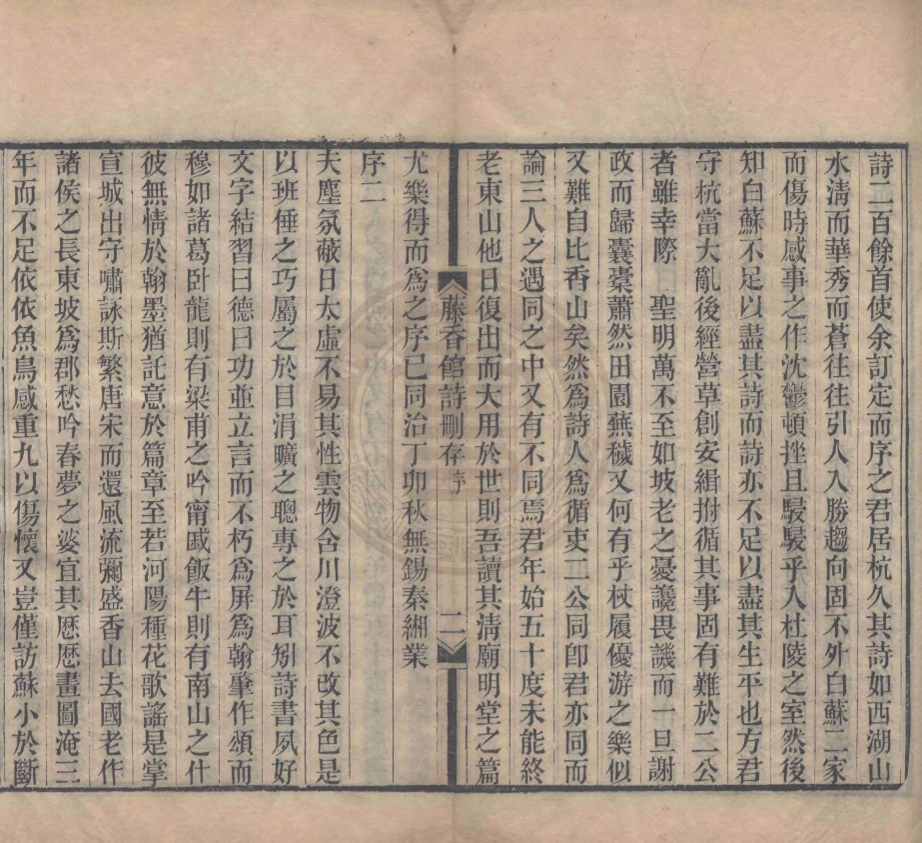 詩二百餘首使余訂定而序之君居杭久其詩如西湖山
水淸而華秀而蒼往往引人入勝趨向固不外白蘇二家
而傷時感事之作沈鬱頓挫且駸駸乎入杜陵之室然後
知白蘇不足以盡其詩而詩亦不足以盡其生平也方君
守杭當大亂後經營草創安緝拊循其事固有難於二公
者雖幸際　聖明萬不至如坡老之憂讒畏譏而一旦謝
政而歸囊橐蕭然田園蕪穢又何有乎杖履優游之樂似
又難自比香山矣然爲詩人爲循吏二公同卽君亦同而
論三人之遇同之中又有不同焉君年始五十度未能終
老東山他日復出而大用於世則吾讀其淸廟明堂之篇
藤香館詩刪存 序 二
尤樂得而爲之序巳同治丁卯秋無錫秦緗業
序二
夫塵氛蔽日太虛不易其性雲物含川澄波不改其色是
以班倕之巧屬之於目涓曠之聰專之於耳矧詩書夙好
文字結習曰德曰功並立言而不朽爲屏爲翰肇作頌而
穆如諸葛卧龍則有梁甫之吟甯戚飯牛則有南山之什
彼無情於翰墨猶託意於篇章至若河陽種花歌謠是掌
宣城出守嘯詠斯繁唐宋而還風流彌盛香山去國老作
諸侯之長東坡爲郡愁吟春夢之婆宜其厯厯畫圖淹三
年而不足依依魚鳥感重九以傷懷又豈僅訪蘇小於斷